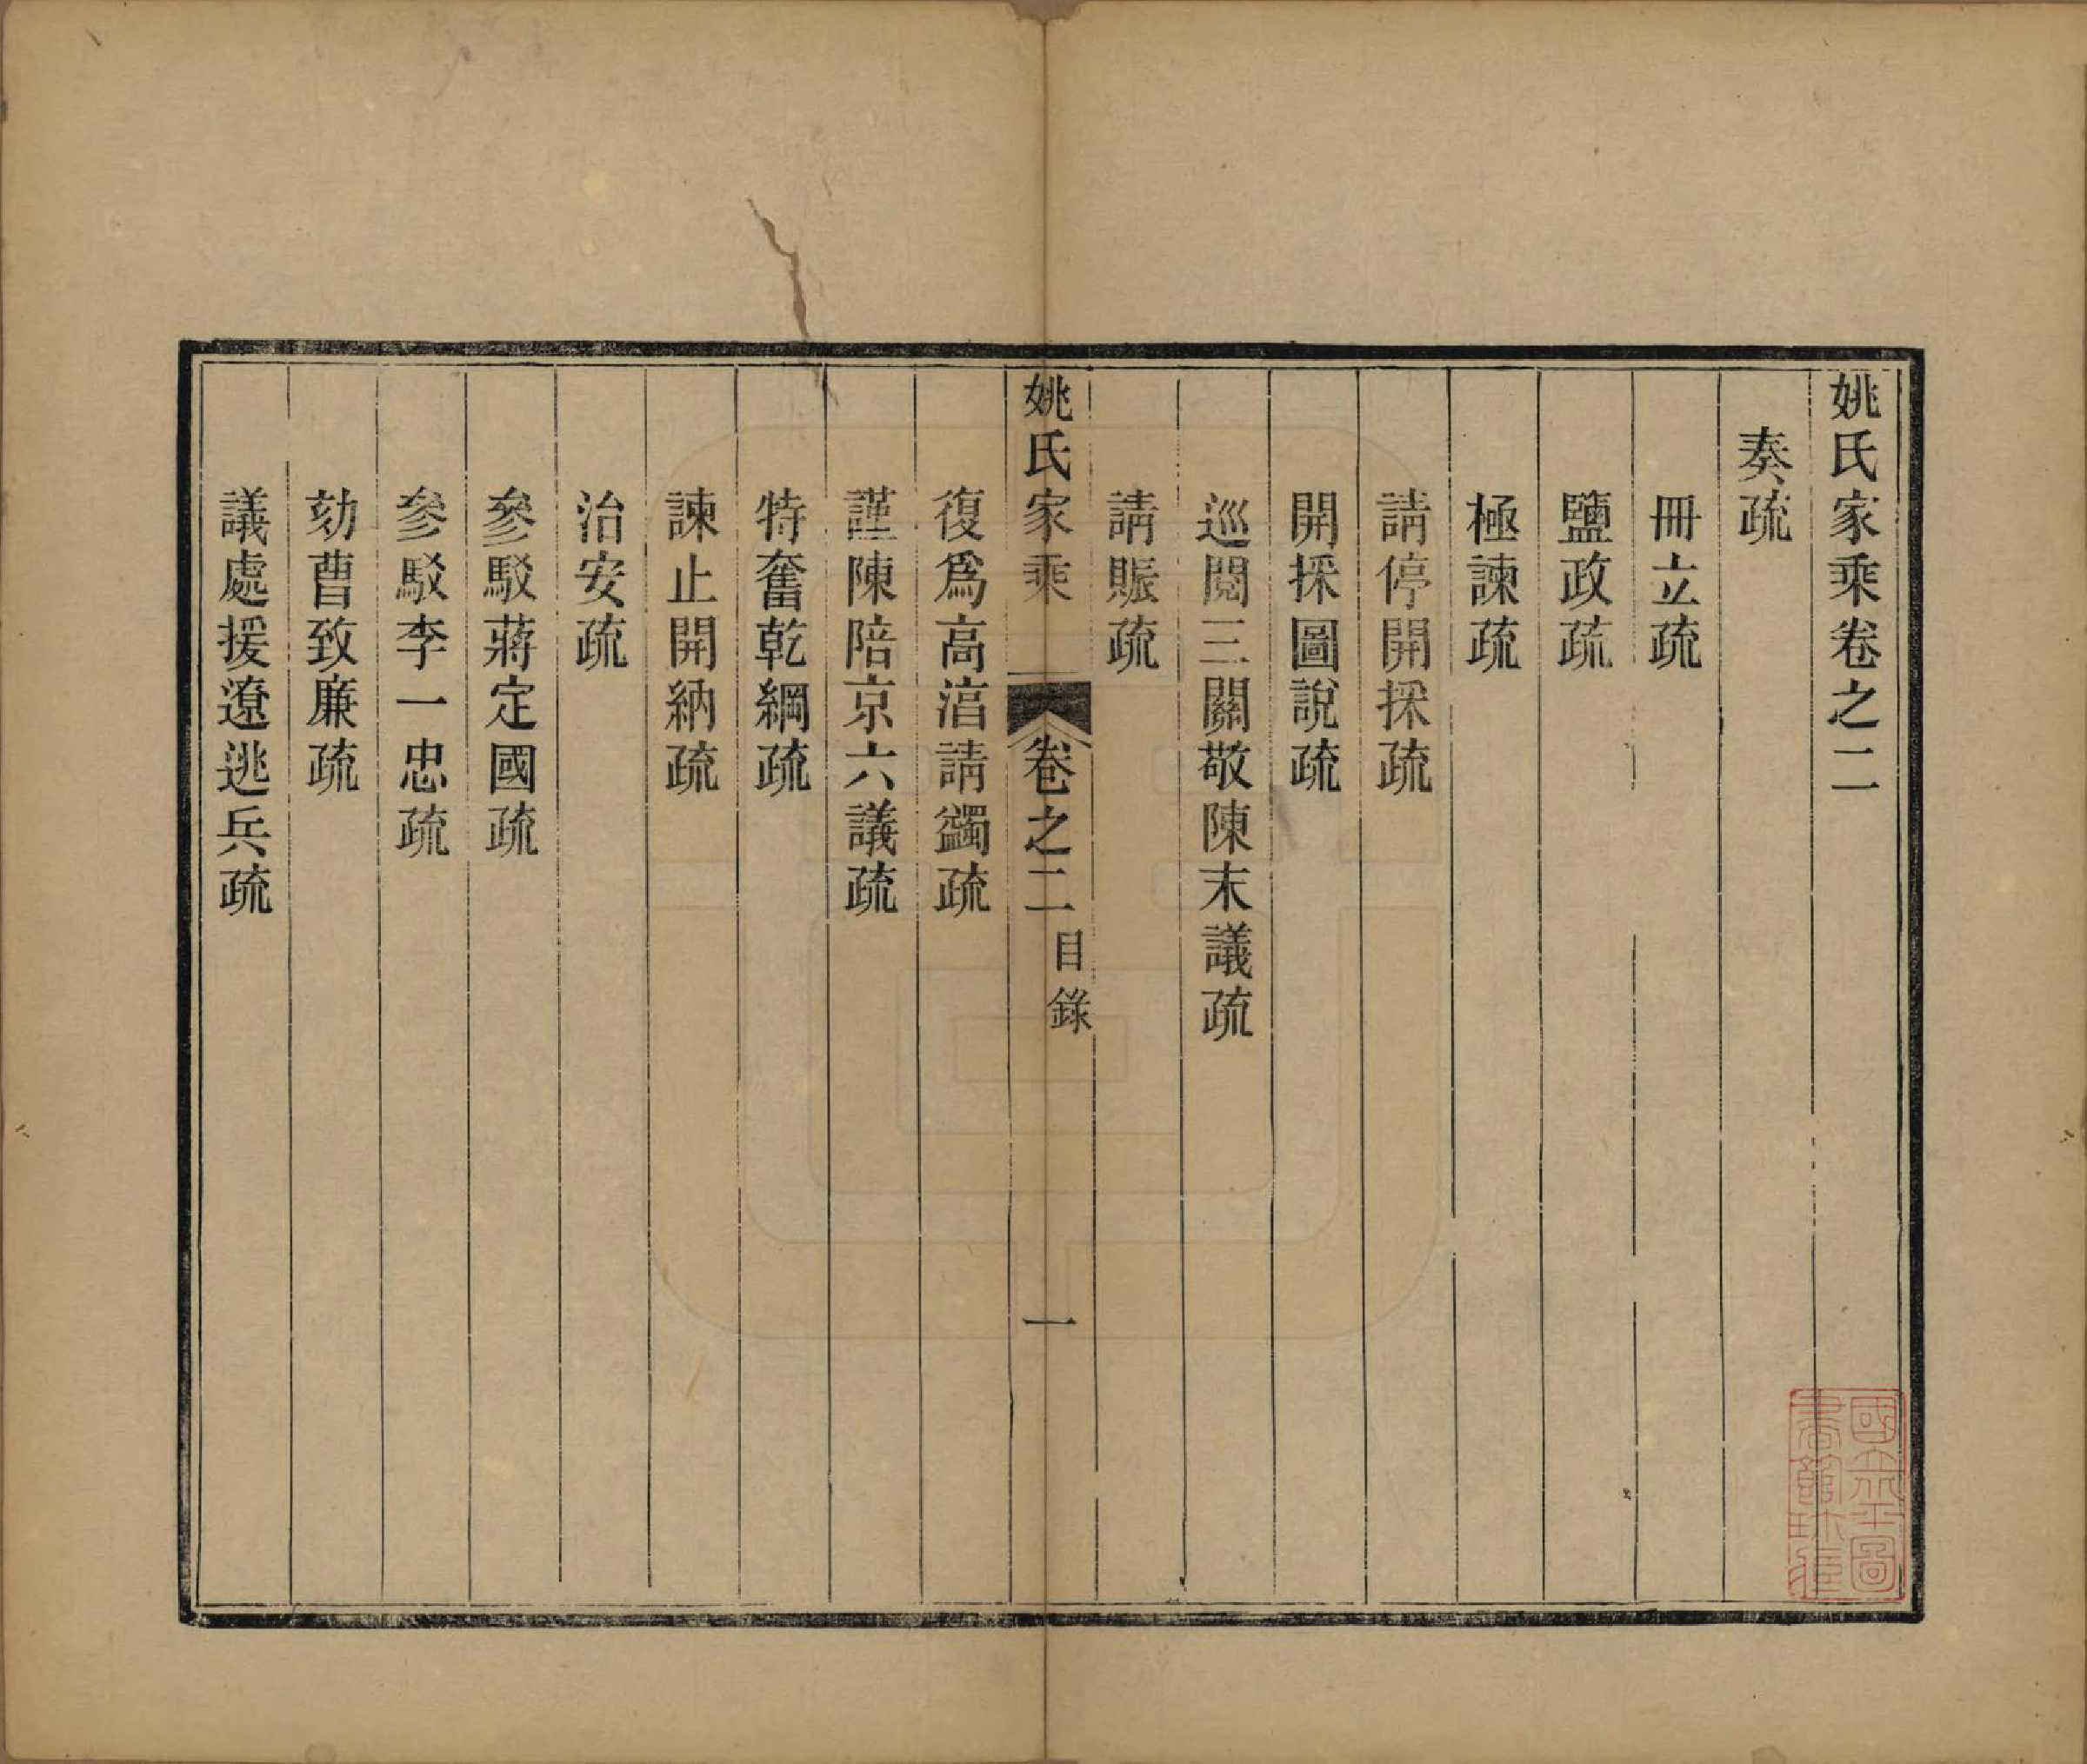 姚氏家乘卷之二
奏疏
冊立疏
鹽政疏
極諫疏
請停開採疏
開採圖說疏
巡閱三關敬陳末議疏
請賑疏
姚氏家乘
卷之二
目錄
一
復爲高淯請蠲疏
謹陳陪京六議疏
特奮乾綱疏
諫止開納疏
治安疏
參駁蔣定國疏
參駁李一忠疏
劾曹致廉疏
議處援遼逃兵疏
國立北平圖書館珍藏